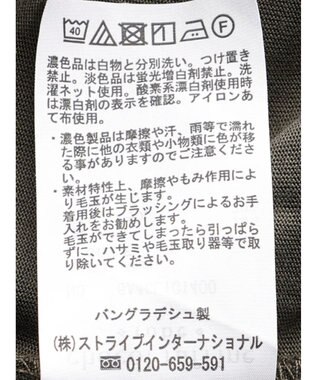 40
F
濃色品は白物と分別洗い。つけ置き
禁止。淡色品は蛍光増白剤禁止。洗
濯ネット使用。酸素系漂白剤使用時
は漂白剤の表示を確認。アイロンあ
て布使用。
・濃色製品は摩擦や汗、雨等で濡れ
た際に他の衣類や小物類に色が移
る事がありますのでご注意くださ
い。
・素材特性上、摩擦やもみ作用によ
り毛玉が生じます。
着用後はブラッシングによるお手
入れをお勧めします。
毛玉ができてしまったら引っぱら
ずに、ハサミや毛玉取り器等で取
り除いてください。
バングラデシュ製
(株)ストライプインターナショナル
0120-659-591